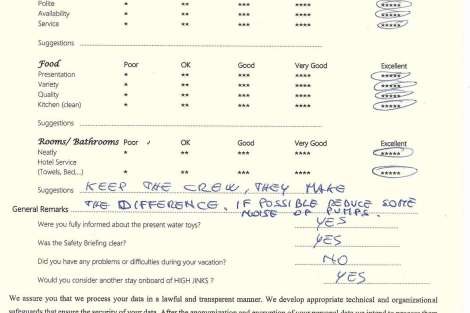 Polite * ** *** **** *****
Availability * ** *** **** *****
Service * ** *** **** *****
Suggestions
Food Poor OK Good Very Good Excellent
Presentation * ** *** **** *****
Variety * ** *** **** *****
Quality * ** *** **** *****
Kitchen (clean) * ** *** **** *****
Suggestions
Rooms/ Bathrooms Poor OK Good Very Good Excellent
Neatly * ** *** **** *****
Hotel Service
(Towels, Bed...) * ** *** **** *****
Suggestions KEEP THE CREW, THEY MAKE
General Remarks THE DIFFERENCE. IF POSSIBLE REDUCE SOME
NOISE OF PUMPS.
Were you fully informed about the present water toys? YES
Was the Safety Briefing clear? YES
Did you have any problems or difficulties during your vacation? NO
Would you consider another stay onboard of HIGH JINKS ? YES
We assure you that we process your data in a lawful and transparent manner. We develop appropriate technical and organizational
safeguards that ensure the security of your data. After the anonymization and encryption of your personal data we intend to process them